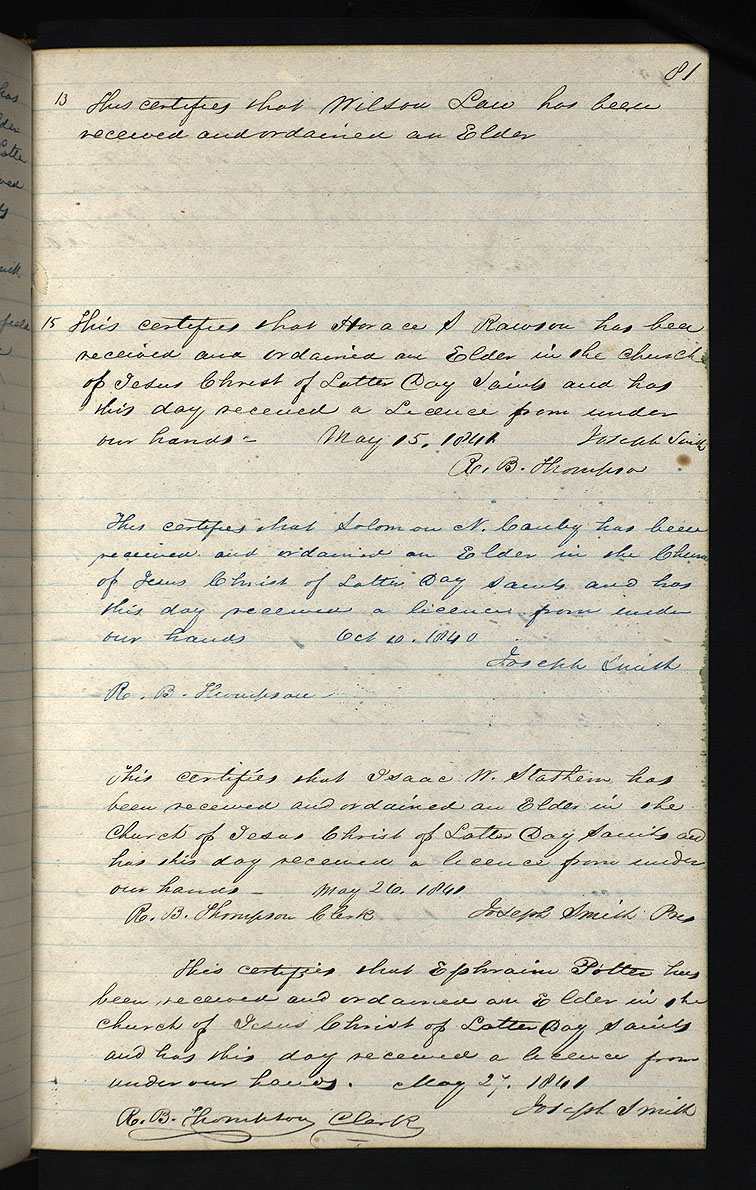 81
13 This certifies that Wilson Law has been
received and ordained an Elder
15 This certifies that Horace S Rawson has been
received and ordained an Elder in the church
of Jesus Christ of Latter Day Saints and has
this day received a Licence from under
our hands - May 15, 1841 Joseph Smith
R. B. Thompson
This certifies that Solomon N. Canby has been
received and ordained an Elder in the Church
of Jesus Christ of Latter Day Saints and has
this day received a licence from under
our hands Oct 10. 1840
Joseph Smith
R. B. Thompson
This certifies that Isaac W. Stathem has
been received and ordained an Elder in the
Church of Jesus Christ of Latter Day Saints and
has this day received a licence from under
our hands - May 26. 1841
R. B. Thompson Clerk Joseph Smith Pres
This certifies that Ephraim Potter has
been received and ordained an Elder in the
church of Jesus Christ of Latter Day Saints
and has this day received a licence from
under our hands. May 27. 1841
Joseph Smith
R. B. Thompson Clerk